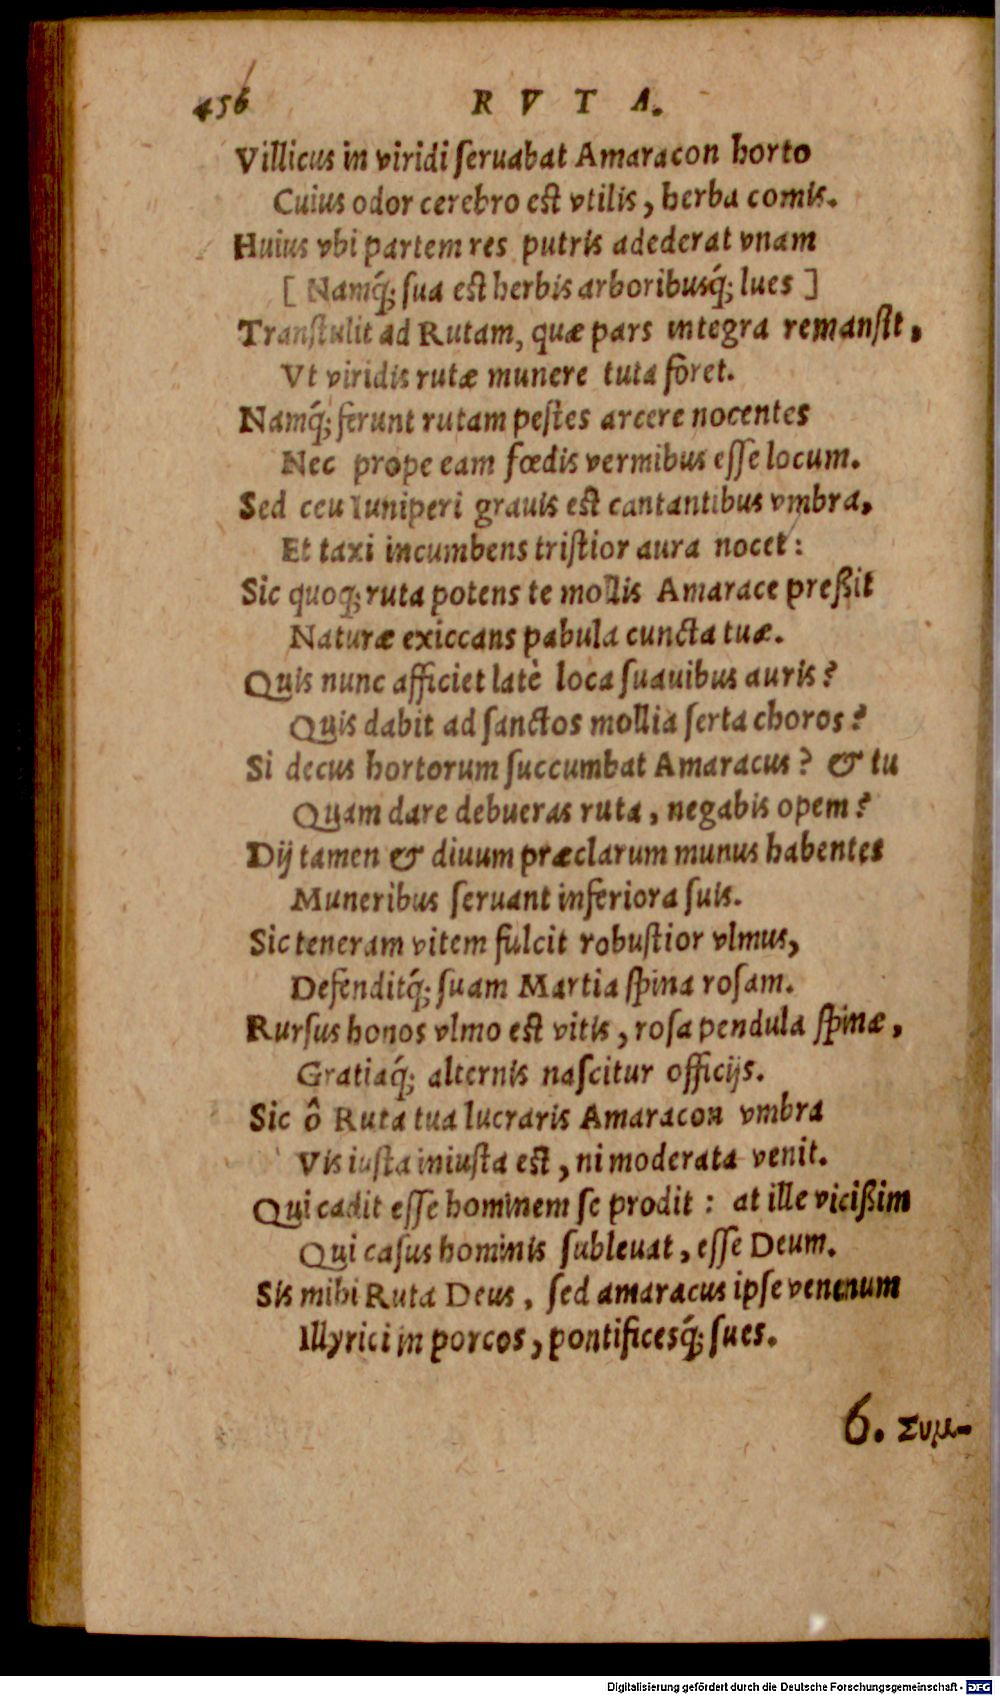 456 R V T A.
Villicus in viridi seruabat Amaracon horto
Cuius odor cerebro est vtilis, herba comis.
Huius vbi partem res putris adederat vnam
[ Namq́; sua est herbis arboribusq́; lues ]
Transtulit ad Rutam, quæ pars integra remansit,
Vt viridis rutæ munere tuta foret.
Namq́; ferunt rutam pestes arcere nocentes
Nec prope eam fœdis vermibus esse locum.
Sed ceu Iuniperi grauis est cantantibus vmbra,
Et taxi incumbens tristior aura nocet:
Sic quoq; ruta potens te mollis Amarace preßit
Naturæ exiccans pabula cuncta tuæ.
Quis nunc afficiet latè loca suauibus auris?
Quis dabit ad sanctos mollia serta choros?
Si decus hortorum succumbat Amaracus? & tu
Quam dare debueras ruta, negabis opem?
Dij tamen & diuum præclarum munus habentes
Muneribus seruant inferiora suis.
Sic teneram vitem fulcit robustior vlmus,
Defenditq́; suam Martia spina rosam.
Rursus honos vlmo est vitis, rosa pendula spinæ,
Gratiaq́; alternis nascitur officijs.
Sic ô Ruta tua lucraris Amaracon vmbra
Vis iusta iniusta est, ni moderata venit.
Qui cadit esse hominem se prodit: at ille vicißim
Qui casus hominis subleuat, esse Deum.
Sis mihi Ruta Deus, sed amaracus ipse venenum
Illyrici in porcos, pontificesq́; sues.
6. Συμ-
Digitalisierung gefördert durch die Deutsche Forschungsgemeinschaft - DFG